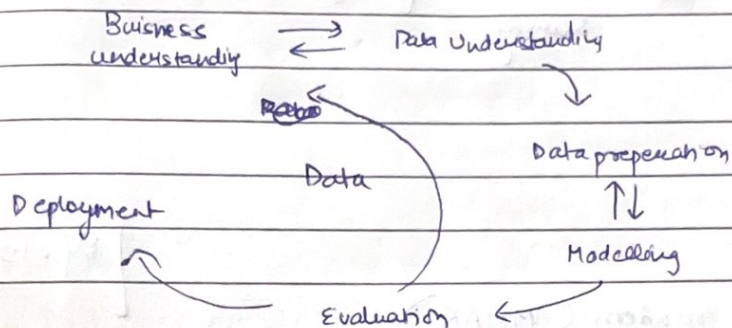 Buisness
understandiy
Data Understandily
Data preperation
Data
Deployment
Modelling
Evaluation